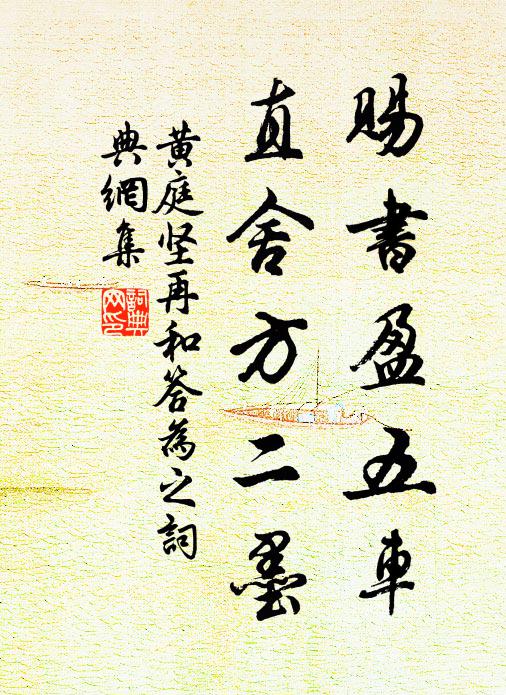 賜書盈五車
直舍方二墨
黄庭坚再和答為之詞
典網集
詞典
网印